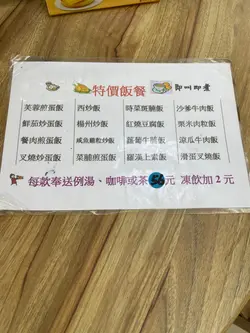 特價飯餐 即叫即煮
芙蓉煎蛋飯 西炒飯 時菜斑腩飯 沙爹牛肉飯
鮮茄炒蛋飯 楊州炒飯 紅燒豆腐飯 粟米肉粒飯
餐肉煎蛋飯 咸魚雞粒炒飯 蘿蔔牛腩飯 涼瓜牛肉飯
叉燒炒蛋飯 菜脯煎蛋飯 羅漢上素飯 滑蛋叉燒飯
每款奉送例湯、咖啡或茶56元 凍飲加2元